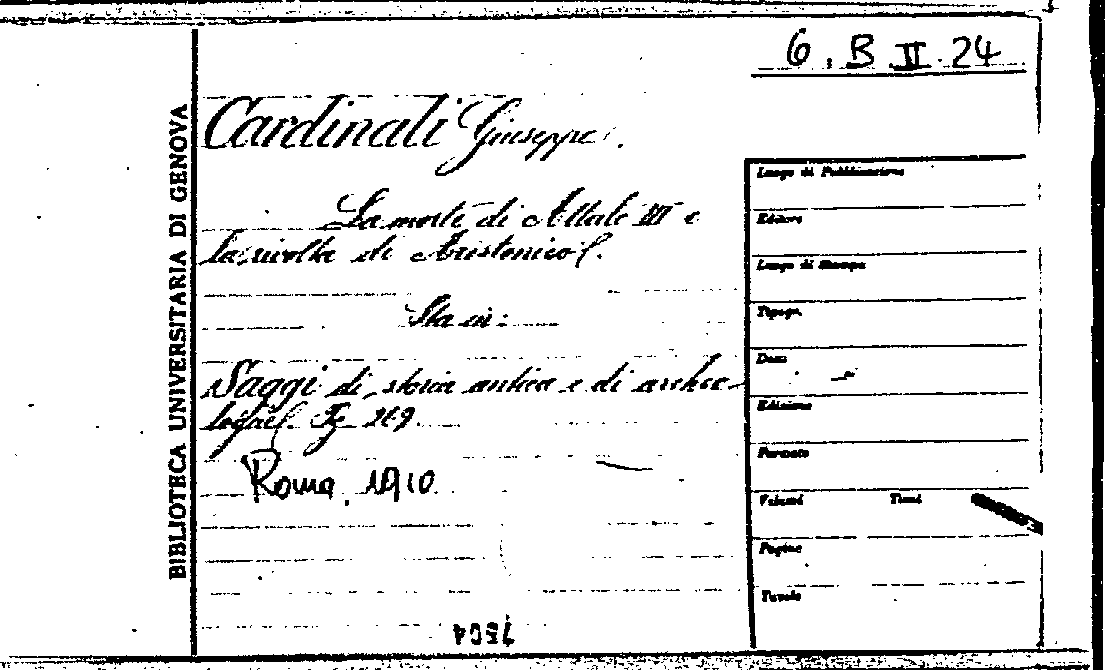 6. B II. 24
BIBLIOTECA UNIVERSITARIA DI GENOVA
Cardinali Giuseppe.
La morte di Attalo III e
la rivolta di Aristonico.
Sta in:
Saggi di storia antica e di archeo-
logia. Pg 269.
Roma, 1910
Luogo di Pubblicazione
Editore
Luogo di Stampa
Tipogr.
Data
Edizione
Formato
Volumi Tomi
Pagine
Tavole